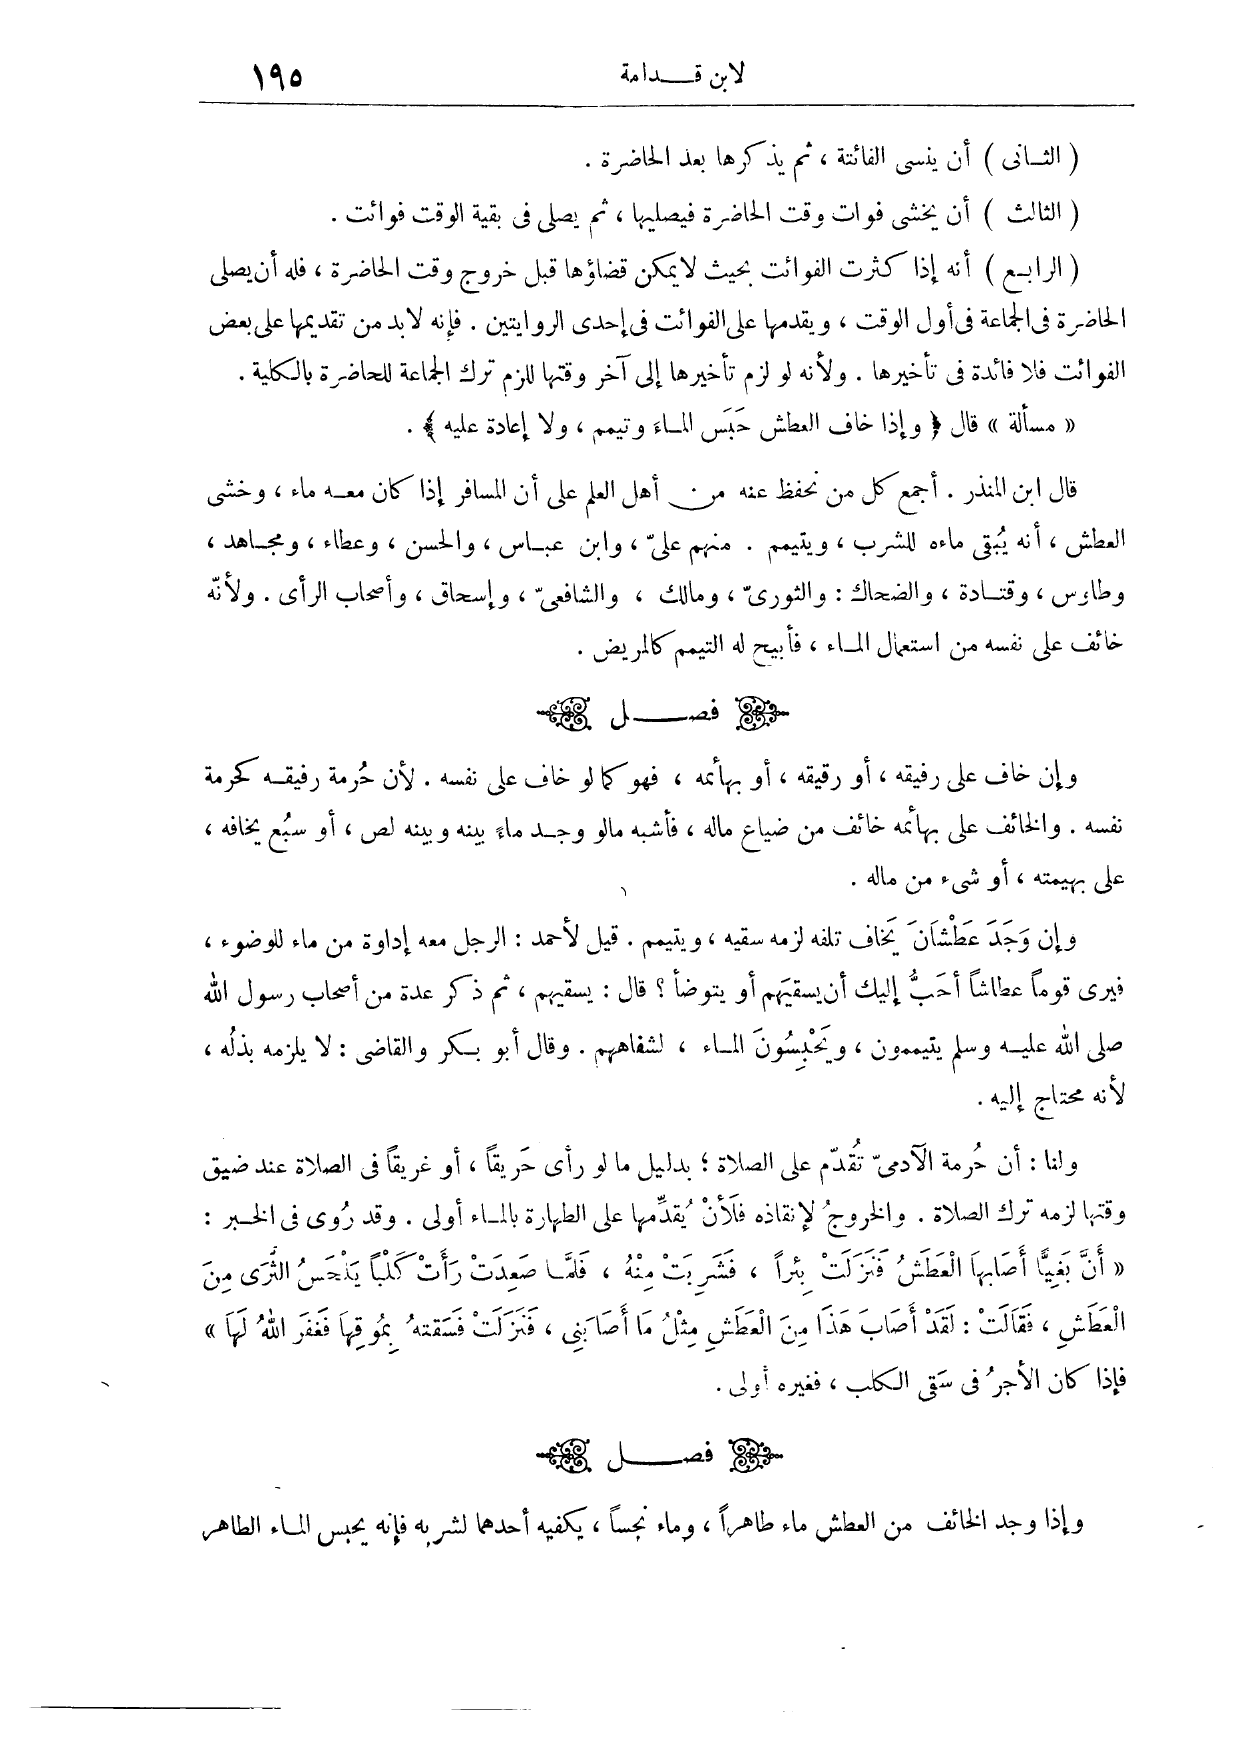 لابن قـــدامة ١٩٥
( الثـانى ) أن ينسى الفائتة ، ثم يذكرها بعد الحاضرة .
( الثالث ) أن يخشى فوات وقت الحاضرة فيصليها ، ثم يصلى فى بقية الوقت فوائت .
( الرابـع ) أنه إذا كثرت الفوائت بحيث لا يمكن قضاؤها قبل خروج وقت الحاضرة ، فله أن يصلى
الحاضرة فى الجماعة فى أول الوقت ، ويقدمها على الفوائت فى إحدى الروايتين . فإنه لابد من تقديمها على بعض
الفوائت فلا فائدة فى تأخيرها . ولأنه لو لزم تأخيرها إلى آخر وقتها للزم ترك الجماعة للحاضرة بالكلية .
« مسألة » قال ﴿ وإذا خاف العطش حَبَسَ المـاءَ وتيمم ، ولا إعادة عليه ﴾ .
قال ابن المنذر . أجمع كل من نحفظ عنه من أهل العلم على أن المسافر إذا كان معـه ماء ، وخشى
العطش ، أنه يُبقى ماءه للشرب ، ويتيمم . منهم علىّ ، وابن عبـاس ، والحسن ، وعطاء ، ومجـاهد ،
وطاوس ، وقتـادة ، والضحاك : والثورىّ ، ومالك ، والشافعىّ ، وإسحاق ، وأصحاب الرأى . ولأنّه
خائف على نفسه من استعمال المـاء ، فأبيح له التيمم كالمريض .
فصـــــل
وإن خاف على رفيقه ، أو رقيقه ، أو بهائمه ، فهو كما لو خاف على نفسه . لأن حُرمة رفيقـه كحرمة
نفسه . والخائف على بهائمه خائف من ضياع ماله ، فأشبه مالو وجـد ماءً بينه وبينه لص ، أو سبُع يخافه ،
على بهيمته ، أو شىء من ماله .
وإن وَجَدَ عَطْشَانَ يَخاف تلفه لزمه سقيه ، ويتيمم . قيل لأحمد : الرجل معه إداوة من ماء للوضوء ،
فيرى قوماً عطاشاً أحَبُّ إليك أن يسقيَهم أو يتوضأ ؟ قال : يسقيهم ، ثم ذكر عدة من أصحاب رسول الله
صلى الله عليـه وسلم يتيممون ، ويَحْبِسُونَ المـاء ، لشفاههم . وقال أبو بـكر والقاضى : لا يلزمه بذلُه ،
لأنه محتاج إليه .
ولنا : أن حُرمة الآدمىّ تُقدّم على الصلاة ؛ بدليل ما لو رأى حَريقاً ، أو غريقاً فى الصلاة عند ضيق
وقتها لزمه ترك الصلاة . والخروجُ لإنقاذه فَلَأنْ يُقدِّمها على الطهارة بالمـاء أولى . وقد رُوى فى الخـبر :
« أَنَّ بَغِيًّا أَصَابها الْعَطَشُ فَنَزَلَتْ بِئْراً ، فَشَرِبَتْ مِنْهُ ، فَلمَّـا صَعِدَتْ رَأَتْ كَلْباً يَلْحَسُ الثَّرَى مِنَ
الْعَطَشِ ، فَقَالَتْ : لَقَدْ أَصَابَ هَذَا مِنَ الْعَطَشِ مِثْلُ مَا أَصَابَنِى ، فَنَزَلَتْ فَسَقتهُ بِمُوقِهَا فَغَفَرَ اللهُ لَهَا »
فإذا كان الأجرُ فى سَقى الـكلب ، فغيره أولى .
فصـــــل
وإذا وجد الخائف من العطش ماء طاهراً ، وماء نجساً ، يكفيه أحدهما لشربه فإنه يحبس المـاء الطاهر